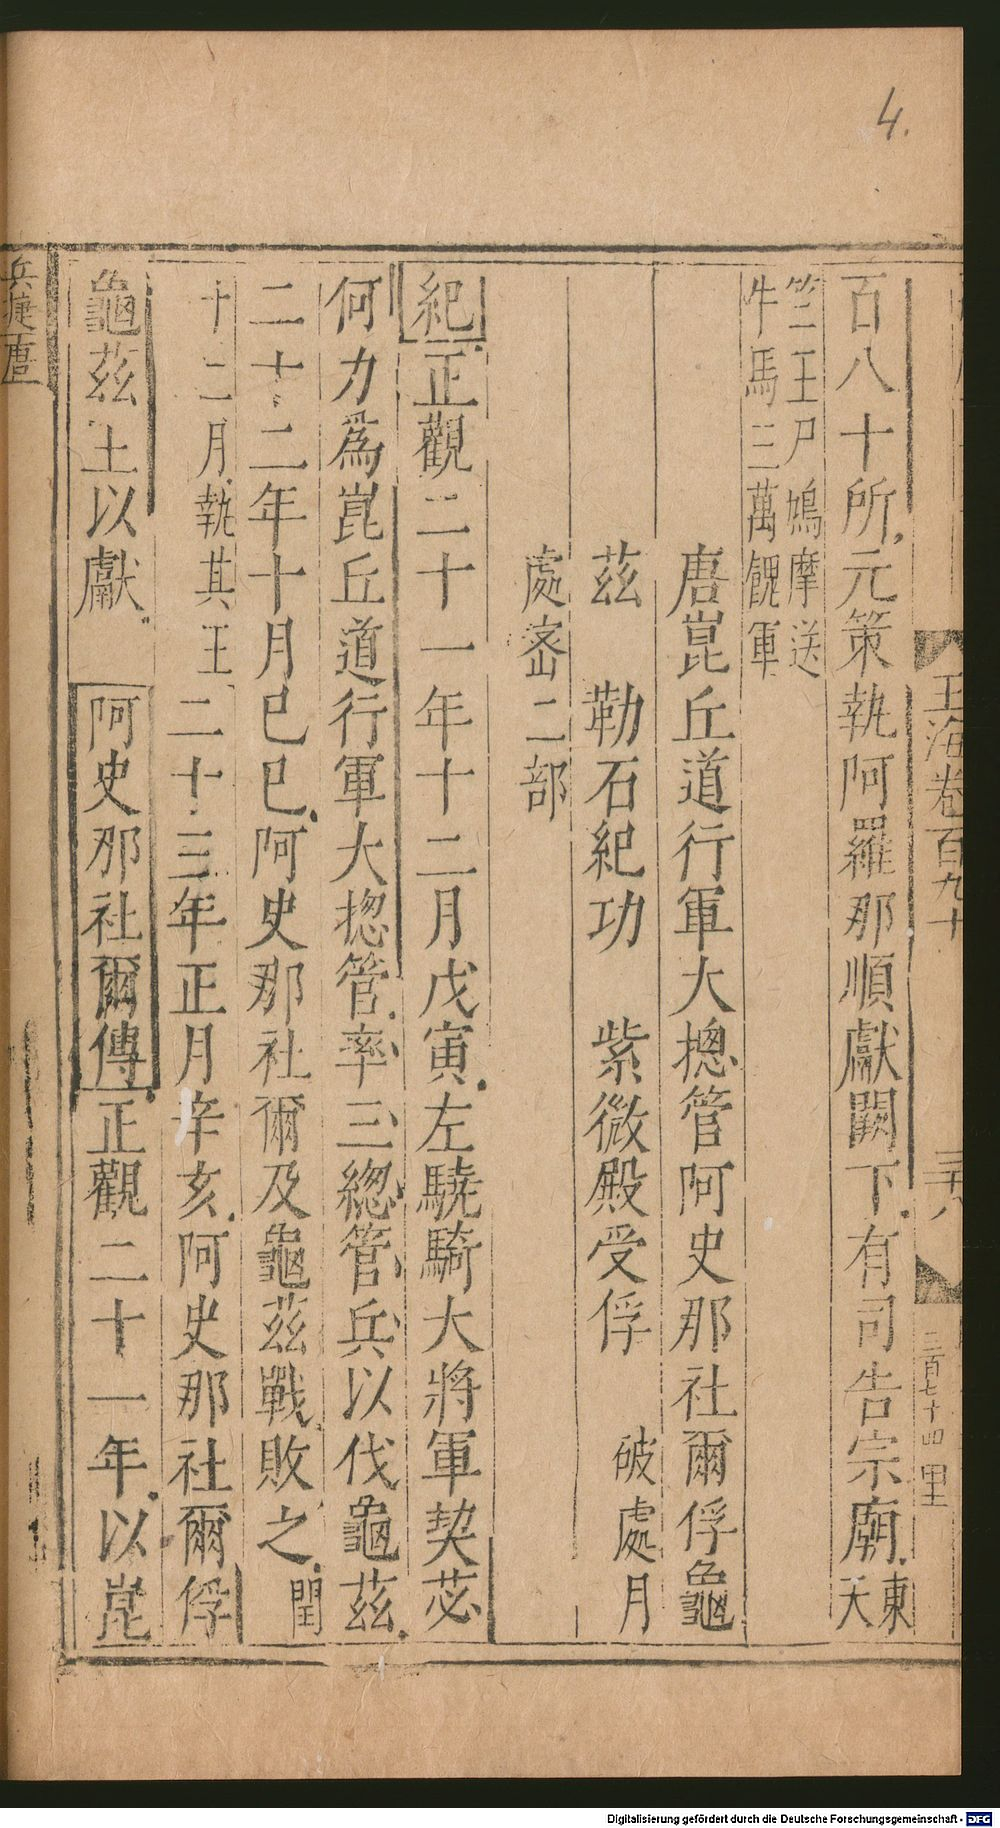 4.
玉海卷百九十
三十八
二百七十四
百八十所元策執阿羅那順獻闕下有司告宗廟東天
竺王尸鳩摩送牛馬三萬餽軍
唐崑丘道行軍大摠管阿史那社爾俘龜
茲 勒石紀功 紫微殿受俘 破處月
處密二部
紀正觀二十一年十二月戊寅左驍騎大將軍契苾
何力為崑丘道行軍大摠管率三總管兵以伐龜茲
二十二年十月己巳阿史那社爾及龜茲戰敗之閏
十二月執其王二十三年正月辛亥阿史那社爾俘
龜茲王以獻 阿史那社爾傳正觀二十一年以崑
兵捷 唐
Digitalisierung gefördert durch die Deutsche Forschungsgemeinschaft - DFG